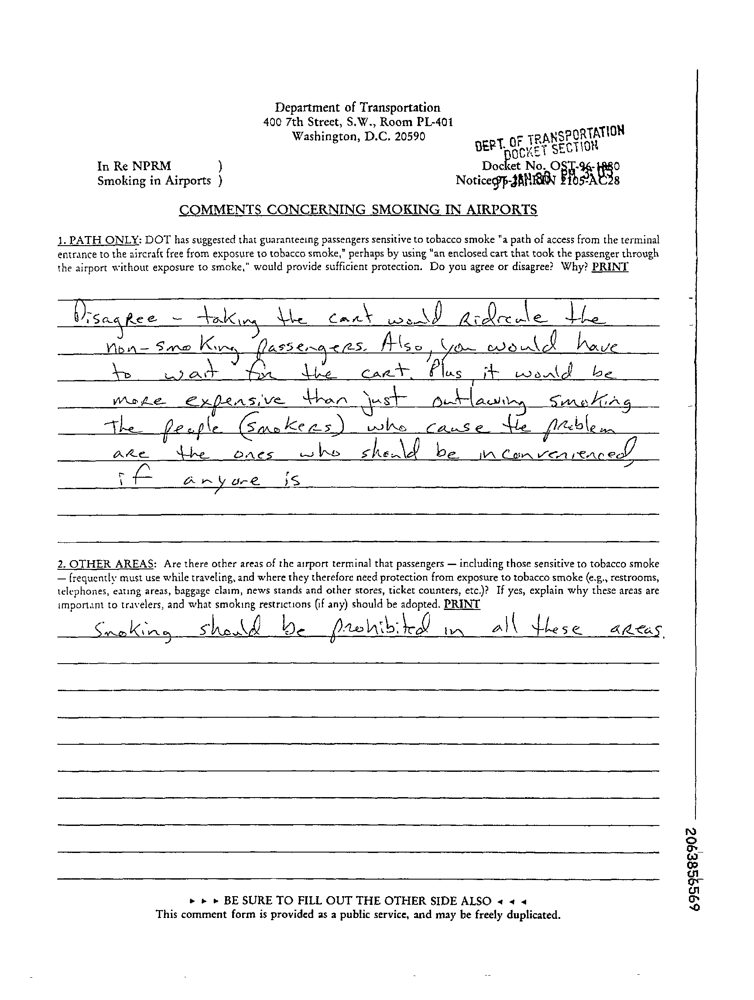 Department of Transportation
400 7th Street, S.W., Room PL-401
Washington, D.C. 20590
DEPT. OF TRANSPORTATION
DOCKET SECTION
In Re NPRM )
Docket No. OST-96-1880
Smoking in Airports )
COMMENTS CONCERNING SMOKING IN AIRPORTS
1. PATH ONLY: DOT has suggested that guaranteeing passengers sensitive to tobacco smoke "a path of access from the terminal
entrance to the aircraft free from exposure to tobacco smoke," perhaps by using "an enclosed cart that took the passenger through
the airport without exposure to smoke," would provide sufficient protection. Do you agree or disagree? Why? PRINT
Disagree - taking the cart would Ridicule the
non-smoking passengers. Also, you would have
to wait for the cart. Plus it would be
more expensive than just outlawing smoking
The people (smokers) who cause the problem
are the ones who should be inconvenienced
if anyone is
2. OTHER AREAS: Are there other areas of the airport terminal that passengers — including those sensitive to tobacco smoke
— frequently must use while traveling, and where they therefore need protection from exposure to tobacco smoke (e.g., restrooms,
telephones, eating areas, baggage claim, news stands and other stores, ticket counters, etc.)? If yes, explain why these areas are
important to travelers, and what smoking restrictions (if any) should be adopted. PRINT
Smoking should be prohibited in all these areas.
▸ ▸ ▸ BE SURE TO FILL OUT THE OTHER SIDE ALSO ◂ ◂ ◂
This comment form is provided as a public service, and may be freely duplicated.
2063856569